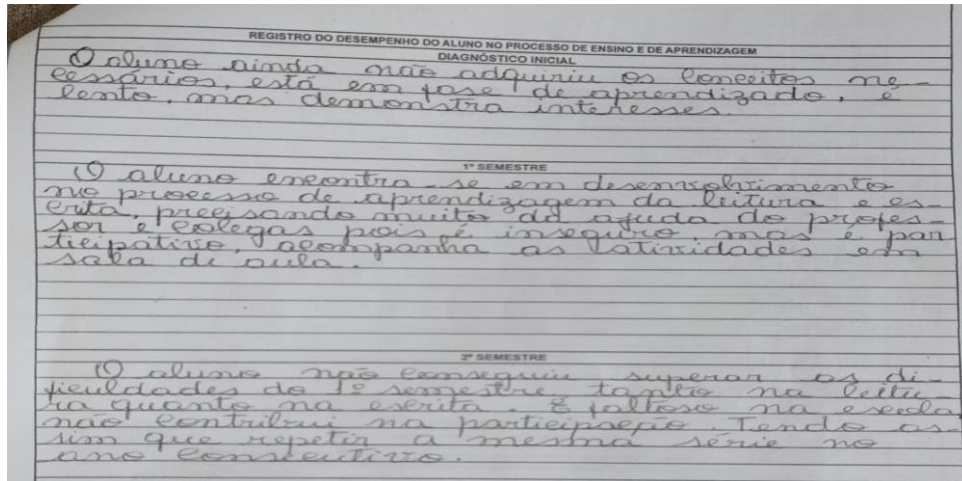 REGISTRO DO DESEMPENHO DO ALUNO NO PROCESSO DE ENSINO E DE APRENDIZAGEM
DIAGNÓSTICO INICIAL
O aluno ainda não adquiriu os conceitos ne-
cessários, está em fase de aprendizado, é
lento, mas demonstra interesses.
1º SEMESTRE
O aluno encontra-se em desenvolvimento
no processo de aprendizagem da leitura e es-
crita, precisando muito da ajuda do profes-
sor e colegas pois é inseguro mas é par
ticipativo, acompanha as atividades em
sala de aula.
2º SEMESTRE
O aluno não conseguiu superar as di-
ficuldades do 1º semestre tanto na leitu-
ra quanto na escrita. É faltoso na escola
não contribui na participação. Tendo as-
sim que repetir a mesma série no
ano consecutivo.